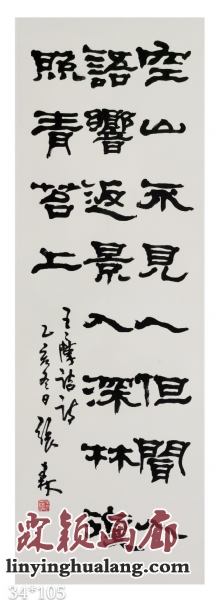 空山不見人但聞人
語響返景入深林復
照青苔上
王摩詰詩
乙亥冬日張森
颖画廊
linyinghualang.com
34*105